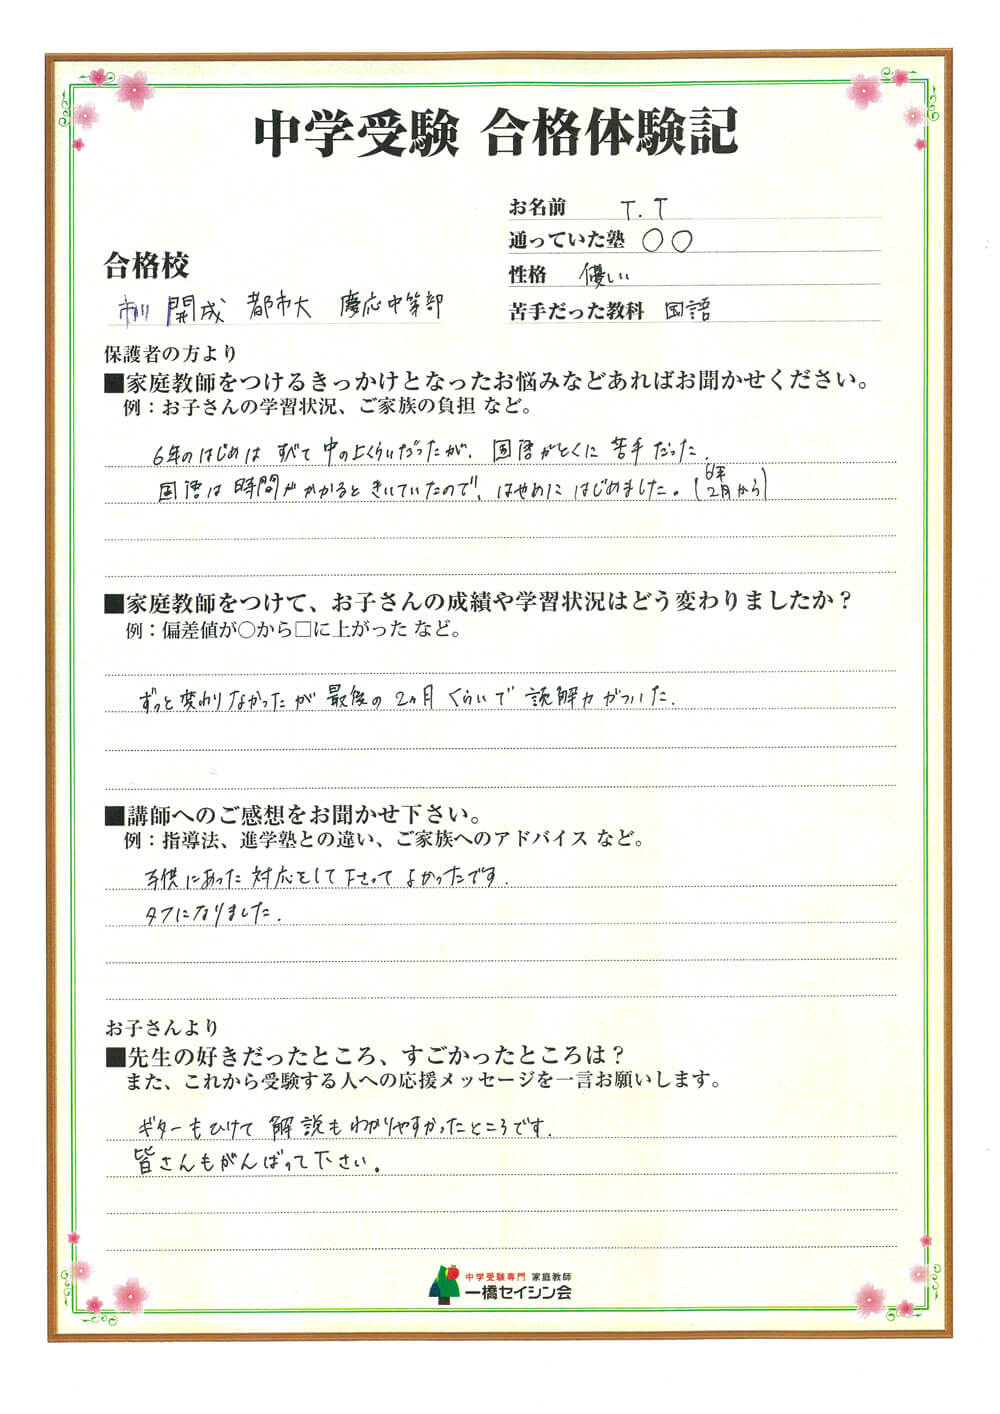 中学受験 合格体験記
お名前 T.T
通っていた塾 〇〇
性格 優しい
苦手だった教科 国語
合格校
市川 開成 都市大 慶応中等部
保護者の方より
■家庭教師をつけるきっかけとなったお悩みなどあればお聞かせください。
例：お子さんの学習状況、ご家族の負担 など。
6年のはじめは すべて 中の上くらいだったが、国語がとくに 苦手だった.
国語は 時間が かかると きいていたので、はやめに はじめました。(6年2月から)
■家庭教師をつけて、お子さんの成績や学習状況はどう変わりましたか？
例：偏差値が〇から□に上がった など。
ずっと変わりなかったが 最後の 2ヵ月 くらいで 読解力がついた.
■講師へのご感想をお聞かせ下さい。
例：指導法、進学塾との違い、ご家族へのアドバイス など。
子供にあった 対応をして下さって よかったです.
タフになりました.
お子さんより
■先生の好きだったところ、すごかったところは？
また、これから受験する人への応援メッセージを一言お願いします。
ギターもひけて 解説もわかりやすかったところです.
皆さんもがんばって下さい。
中学受験専門 家庭教師
一橋セイシン会